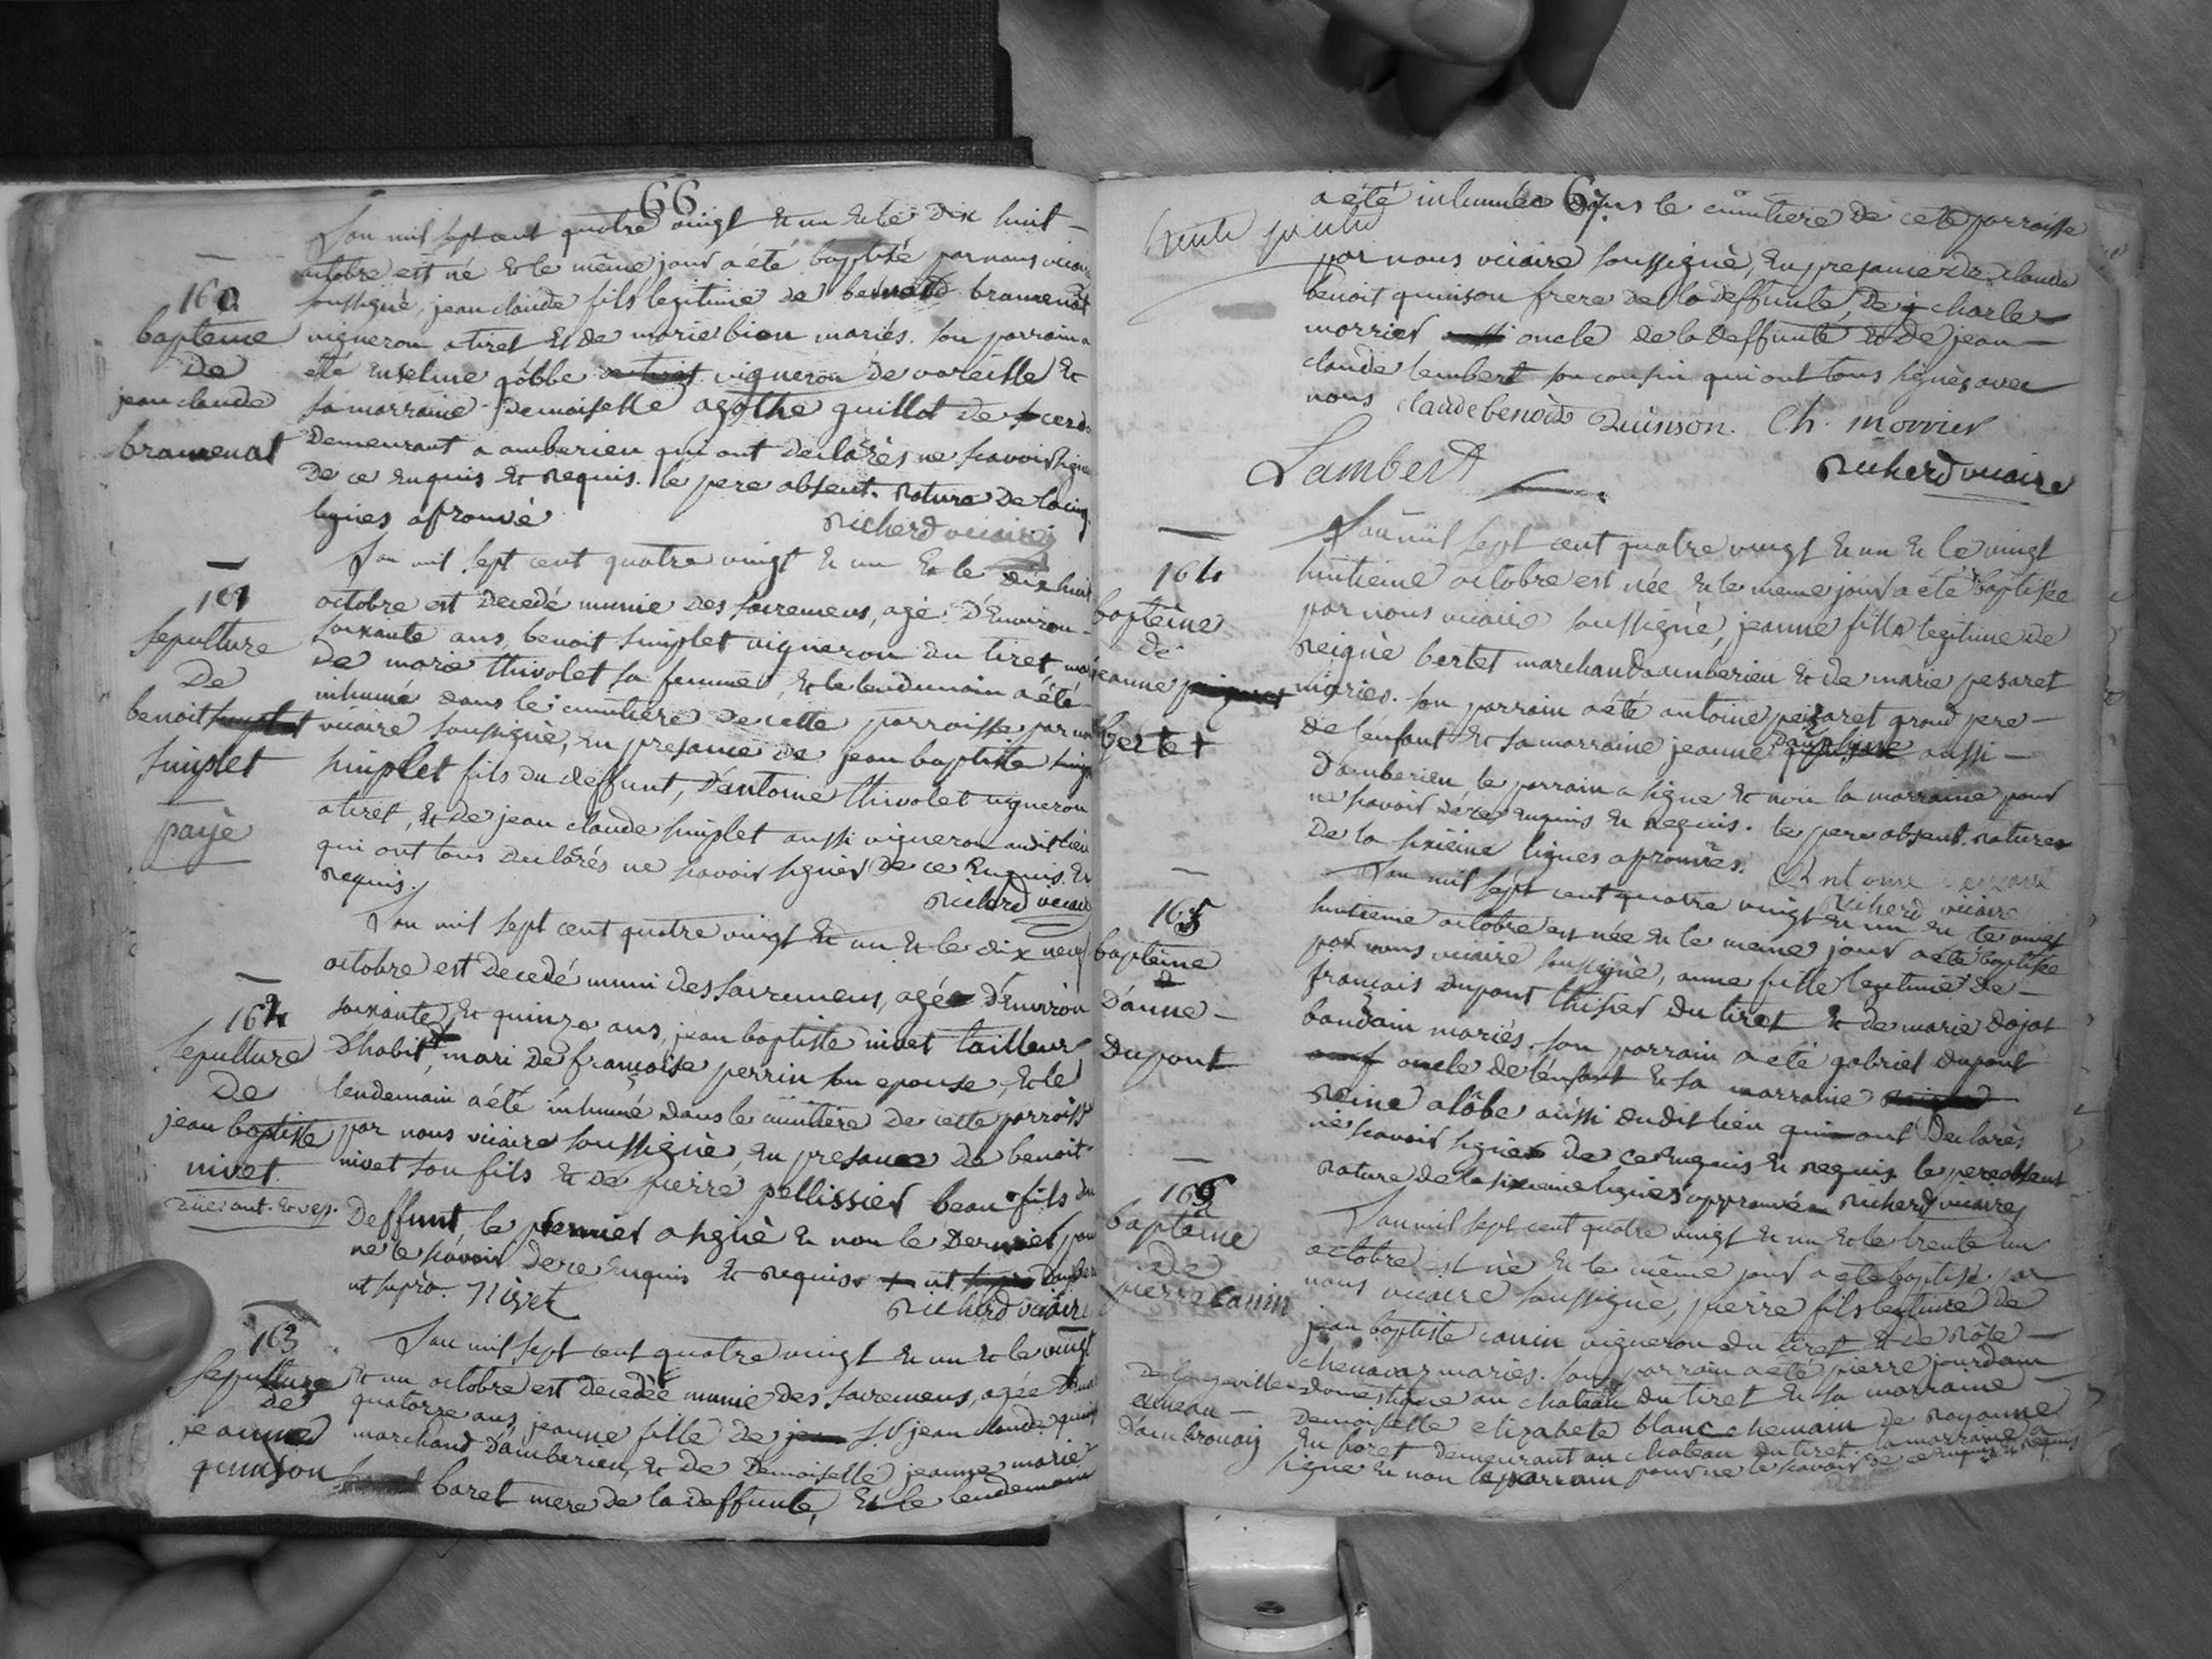 66
L'an mil sept cent quatre vingt et un et le dix huit
octobre est né et le même jour a été baptisé par nous vicaire
soussigné, jean claude fils legitime de benoit bramenat
vigneron a tiret et de marie bion mariés. son parrain a
été enselme gobbe vigneron de vareille et
sa marraine demoiselle agathe guillot de
demeurant a amberieu qui ont declarés ne scavoir signer
de ce enquis et requis. le pere absent. rature de la cinq.
lignes aprouvé
Richerd vicaire
160
bapteme
de
jean claude
bramenat
L'an mil sept cent quatre vingt et un et le dix huit
octobre est decedé munie des sacremens, agé d'environ
soixante ans, benoit simplet vigneron du tiret mari
de marie thivolet sa femme, et le lendemain a été
inhumé dans le cimetiere de cette parroisse par nous
vicaire soussigné, en presance de jean baptiste
simplet fils du deffunt, d'antoine thivolet vigneron
a tiret, et de jean claude simplet aussi vigneron audit lieu
qui ont tous declarés ne scavoir signer de ce enquis et
requis.
Richerd vicaire
161
sepulture
de
benoit
simplet
payé
L'an mil sept cent quatre vingt et un et le dix neuf
octobre est decedé muni des sacremens, agé d'environ
soixante et quinze ans, jean baptiste nivet tailleur
d'habit, mari de françoise perrin son epouse, et le
lendemain a été inhumé dans le cimitiere de cette parroisse
par nous vicaire soussigné, en presance de benoit
nivet son fils et de pierre pellissier beau fils du
deffunt, le premier a signé et non le dernier pour
ne le scavoir de ce enquis et requis
ut supra. Nivet
Richerd vicaire
162
sepulture
de
jean baptiste
nivet
L'an mil sept cent quatre vingt et un et le vingt
et un octobre est decedée munie des sacremens, agée
quatorze ans, jeanne fille de Sr jean claude
marchand d'amberieu, et de demoiselle jeanne marie
baret mere de la deffunte, et le lendemain
163
sepulture
de
jeanne
quinson
67
a été inhumée dans le cimetiere de cete parroisse
par nous vicaire soussigné, en presance de claude
benoit quinson frere de la deffunte, de charle
morrier oncle de la deffunte et de jean
claude lembert son cousin qui ont tous signés avec
nous claude benoit Quinson. Ch. morrier
Lambert
Richerd vicaire
L'an mil sept cent quatre vingt et un et le vingt
huitieme octobre est née et le meme jour a été baptisée
par nous vicaire soussigné, jeanne fille legitime de
reigné bertet marchand a amberieu et de marie pesaret
mariés. son parrain a été antoine pesaret grand pere
de l'enfant et sa marraine jeanne aussi
d'amberieu le parrain a signé et non la marraine pour
ne scavoir de ce enquis et requis. le pere absent. ratures
de la sixieme lignes aprouvées. Antoine
Richerd vicaire
164
bapteme
de
jeanne
bertet
L'an mil sept cent quatre vingt et un et le vingt
huitieme octobre est née et le meme jour a été baptisée
par nous vicaire soussigné, anne fille legitime de
francais dupont thisser du tiret et de marie dojat
baudain mariés. son parrain a été gabriel dupont
oncle de l'enfant et sa marraine
reine alobe aussi dudit lieu qui ont declarés
ne scavoir signer de ce enquis et requis le pere absent
rature de la sixieme lignes approuvée Richerd vicaire
165
bapteme
d'anne
dupont
L'an mil sept cent quatre vingt et un et le trente un
octobre est né et le même jour a été baptisé par
nous vicaire soussigné, pierre fils legitime de
jean baptiste canin vigneron du tiret et de rose
chenavaz mariés. son parrain a été pierre jourdain
domestique au chateau du tiret et sa marraine
demoiselle elizabete blanc chemain de royanne
en foret demeurant au chateau du tiret. la marraine a
signé et non le parrain pour ne le scavoir de ce enquis et requis
166
bapteme
de
pierre canin
d'ambronaiy